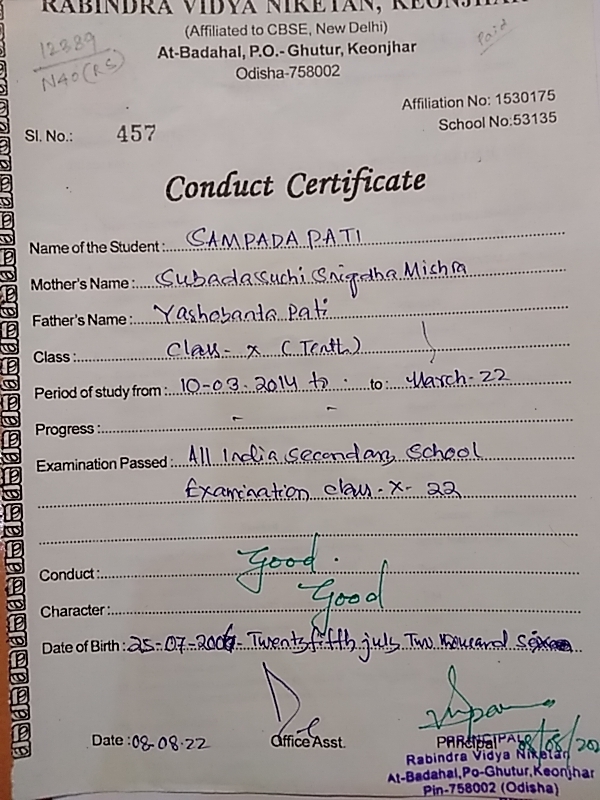 RABINDRA VIDYA NIKETAN, KEONJHAR
(Affiliated to CBSE, New Delhi)
12889
N40(RS)
Paid
At-Badahal, P.O.- Ghutur, Keonjhar
Odisha-758002
Affiliation No: 1530175
School No:53135
Sl. No.: 457
Conduct Certificate
Name of the Student : SAMPADA PATI
Mother's Name : Subadassuchi Snigdha Mishra
Father's Name : Yashobanta Pati
Class : Class - X (Tenth)
Period of study from : 10-03-2014 to . to : March-22
Progress : - -
Examination Passed : All India Secondary School
Examination class-X- 22
Conduct : Good.
Character : Good
Date of Birth : 25-07-2006- Twentyfifth july Two thousand
Date : 08-08-22 Office Asst. Principal 08/08/202
PRINCIPAL
Rabindra Vidya Niketan
At-Badahal,Po-Ghutur,Keonjhar
Pin-758002 (Odisha)